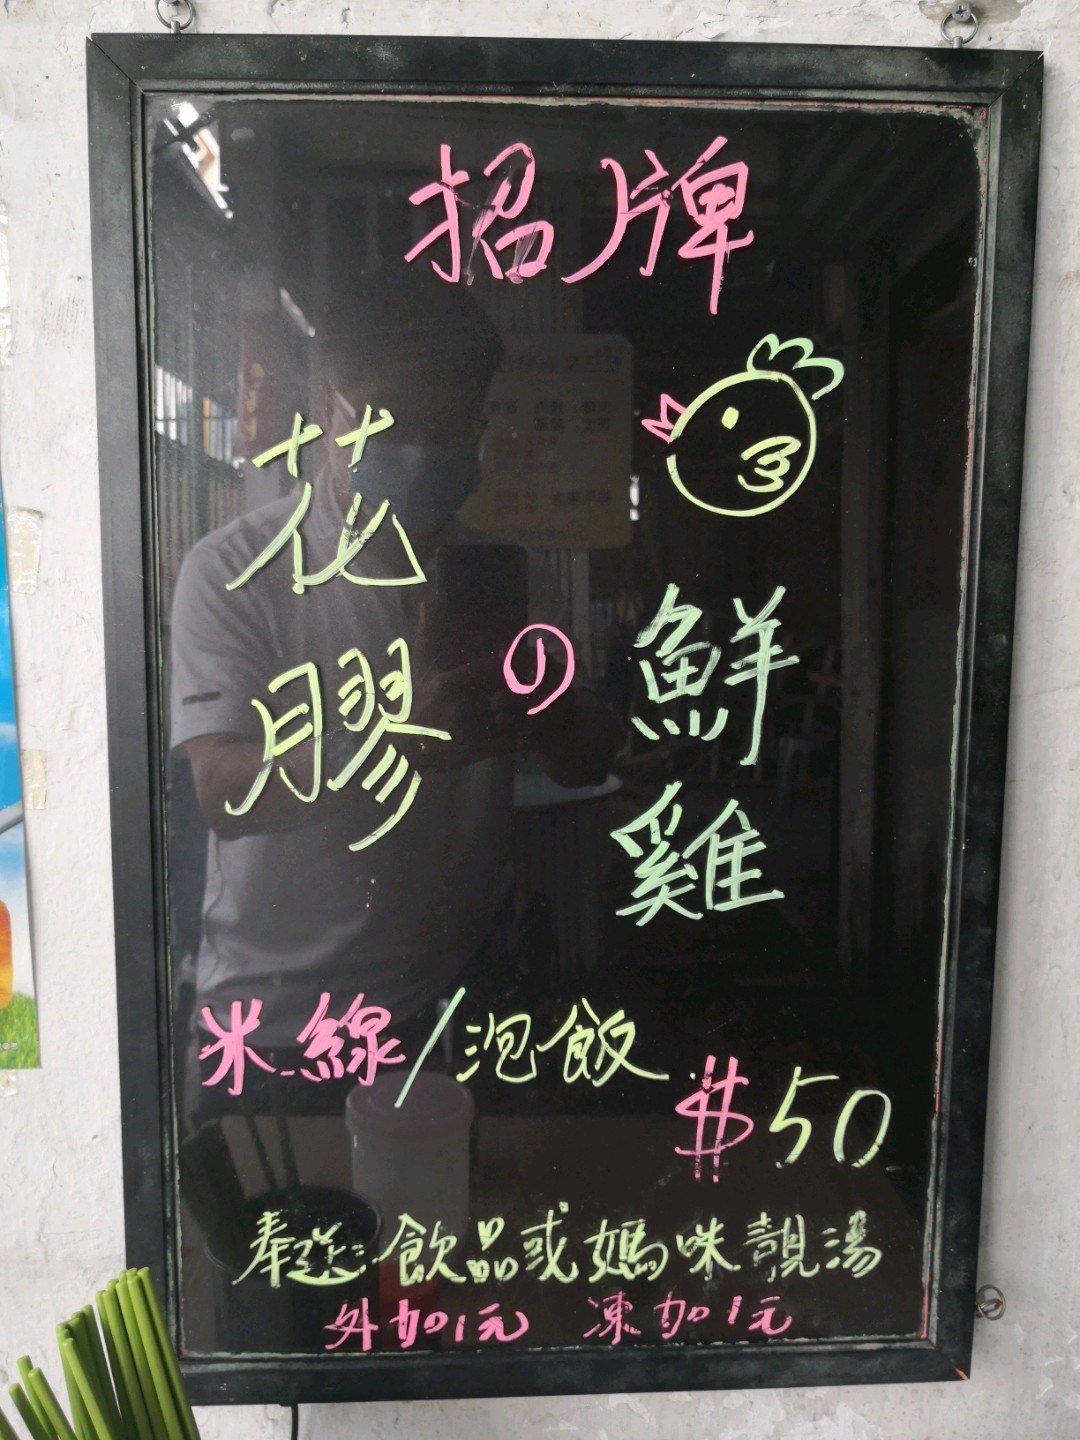 招牌
花膠の鮮雞
米線/泡飯
$50
奉送:飲品或媽咪靚湯
外加1元 凍加1元